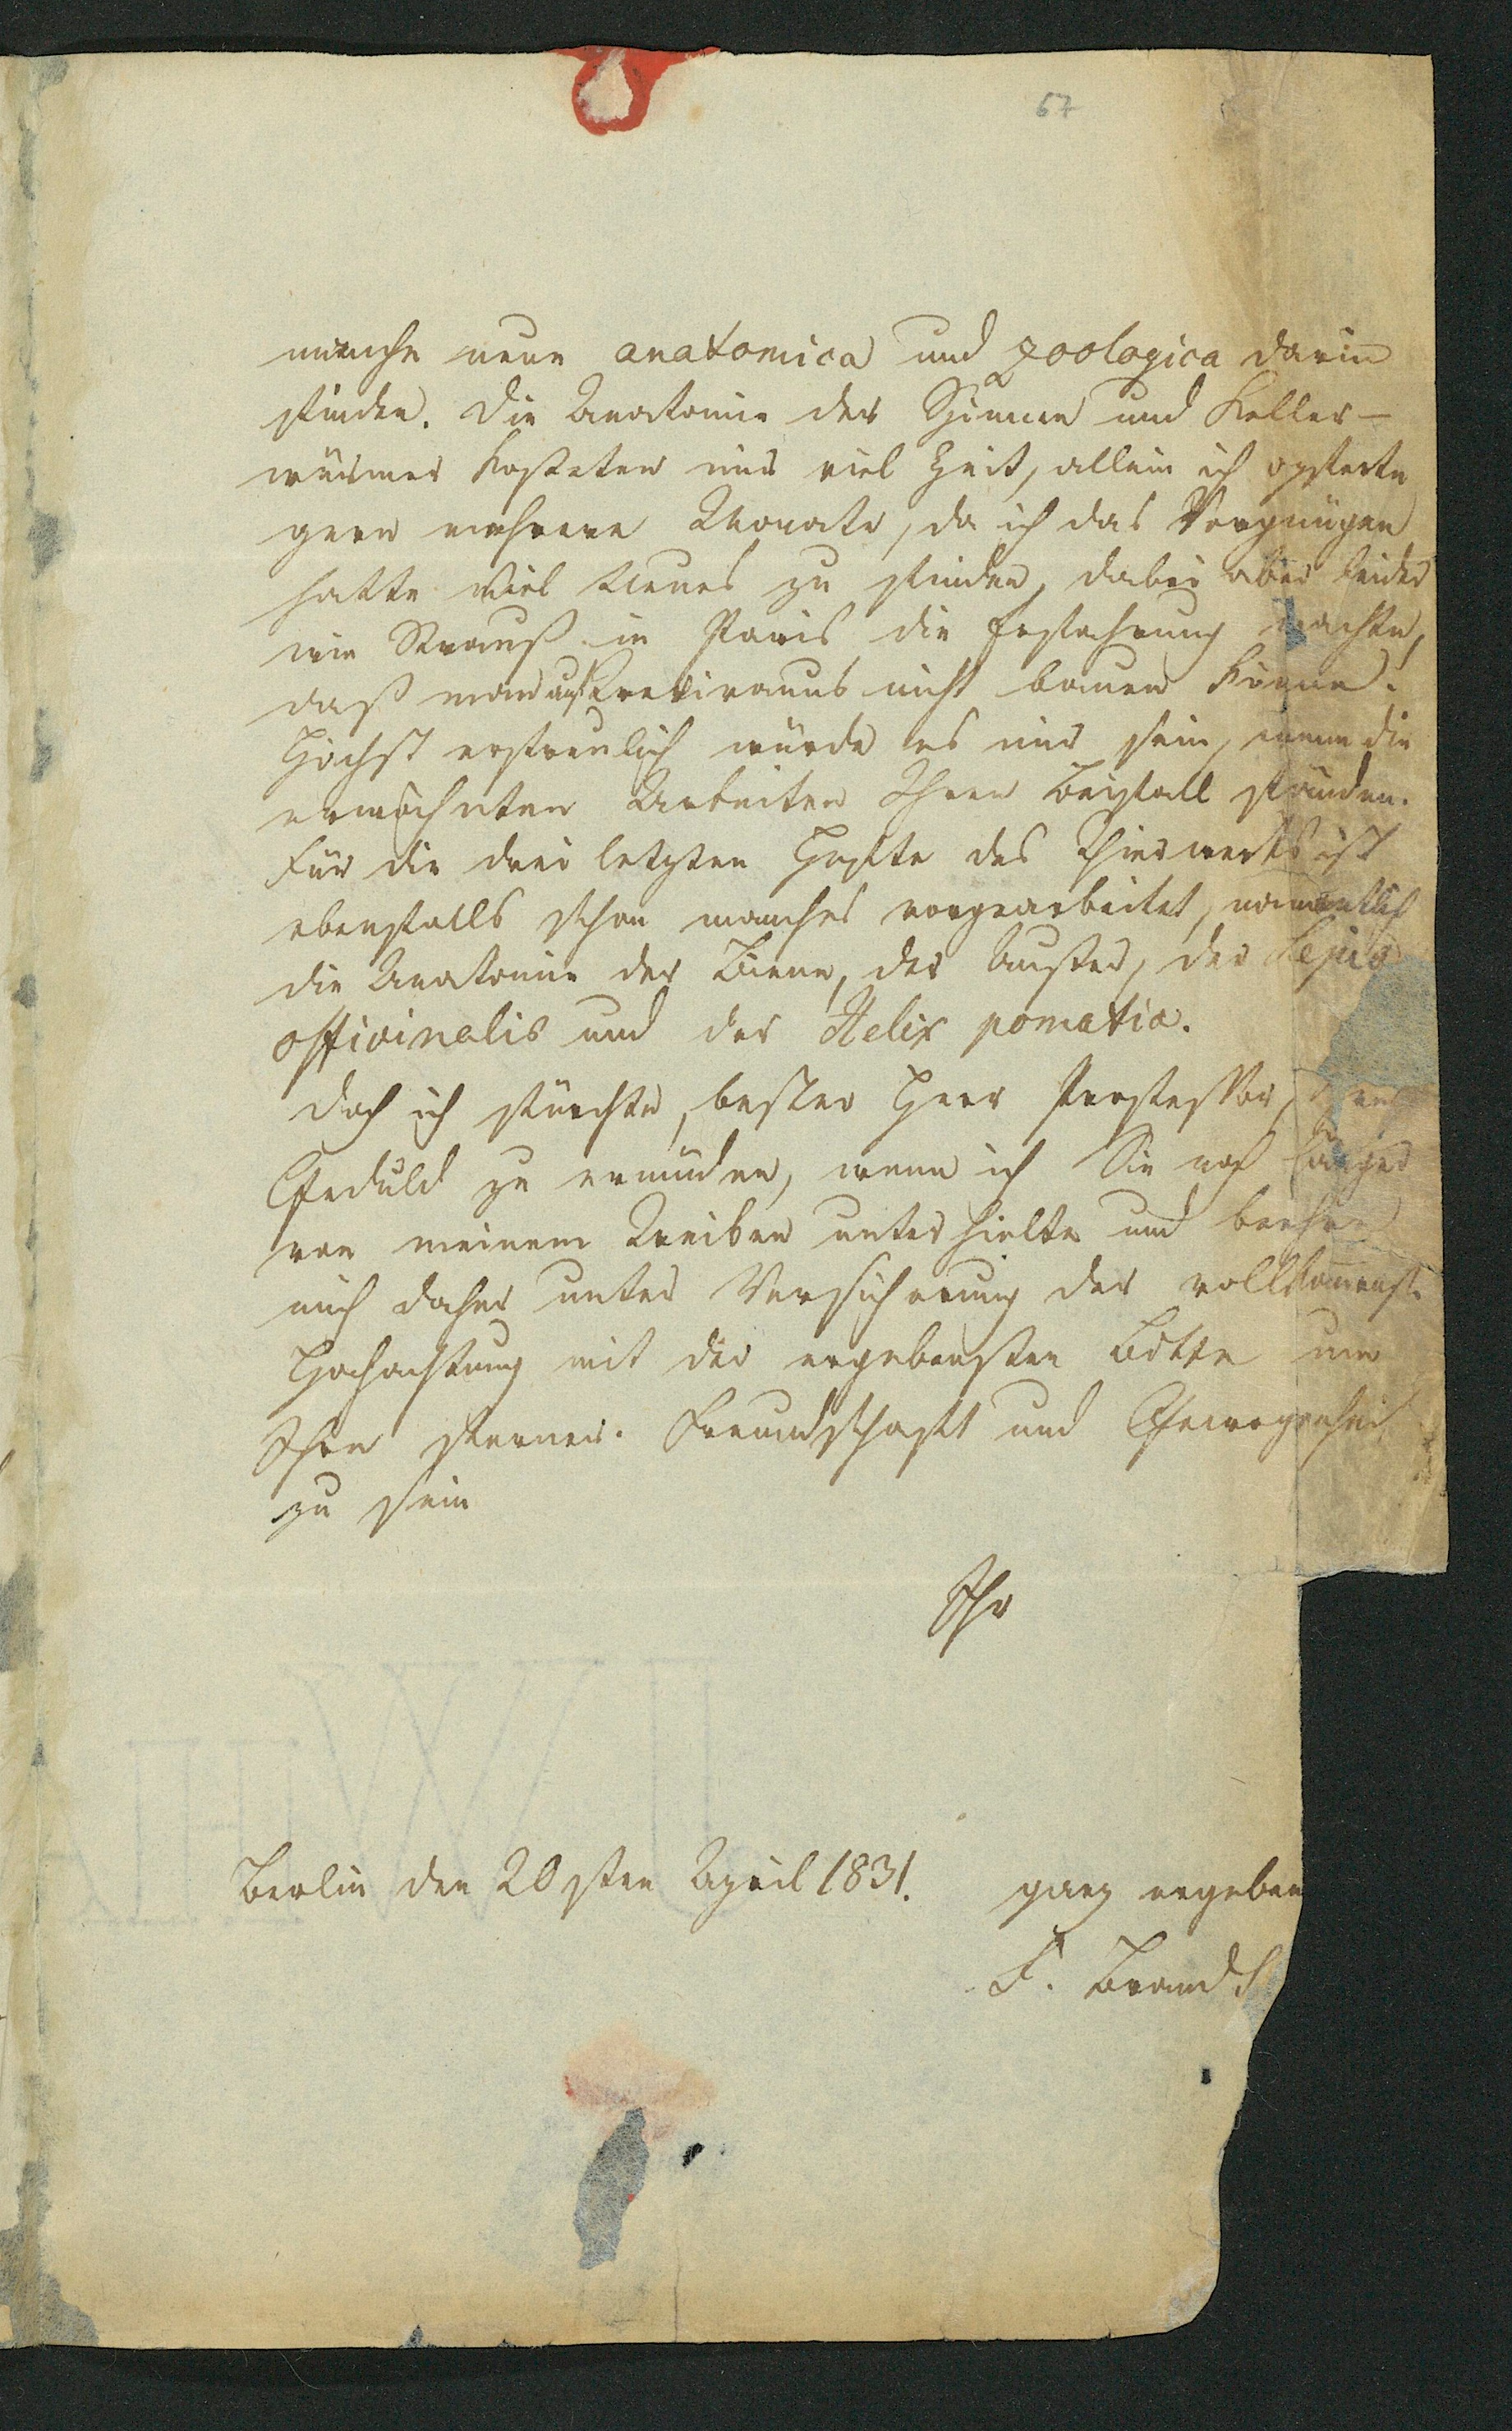 67
manche neue anatomica und zoologica darin
finden. Die Anatomie der Spinne und Keller-
würmer kosteten mir viel Zeit, allein ich opferte
gern mehrere Monate, da ich das Vergnügen
hatte viel Neues zu finden, dabei aber leider
wie Strauß in Paris die Erfahrung machte,
daß man auf Treviranus nicht bauen könne.
Höchst erfreulich würde es mir sein, wenn die
erwähnten Arbeiten Ihren Beifall fänden.
Für die drei letzten Hefte des Thierwerks ist
ebenfalls schon manches vorgearbeitet, namentlich
die Anatomie der Biene, der Auster, der Sepia
officinalis und der Helix pomatia.
Doch ich fürchte, bester Herr Professor, Ihre
Geduld zu ermüden, wenn ich Sie noch länger
von meinem Treiben unterhielte und beehre
mich daher unter Versicherung der vollkommenst.
Hochachtung mit der ergebensten Bitte um
Ihre ferner. Freundschaft und Gewogenheit
zu sein
Ihr
Berlin den 20sten April 1831.
ganz ergeben
F. Brandt